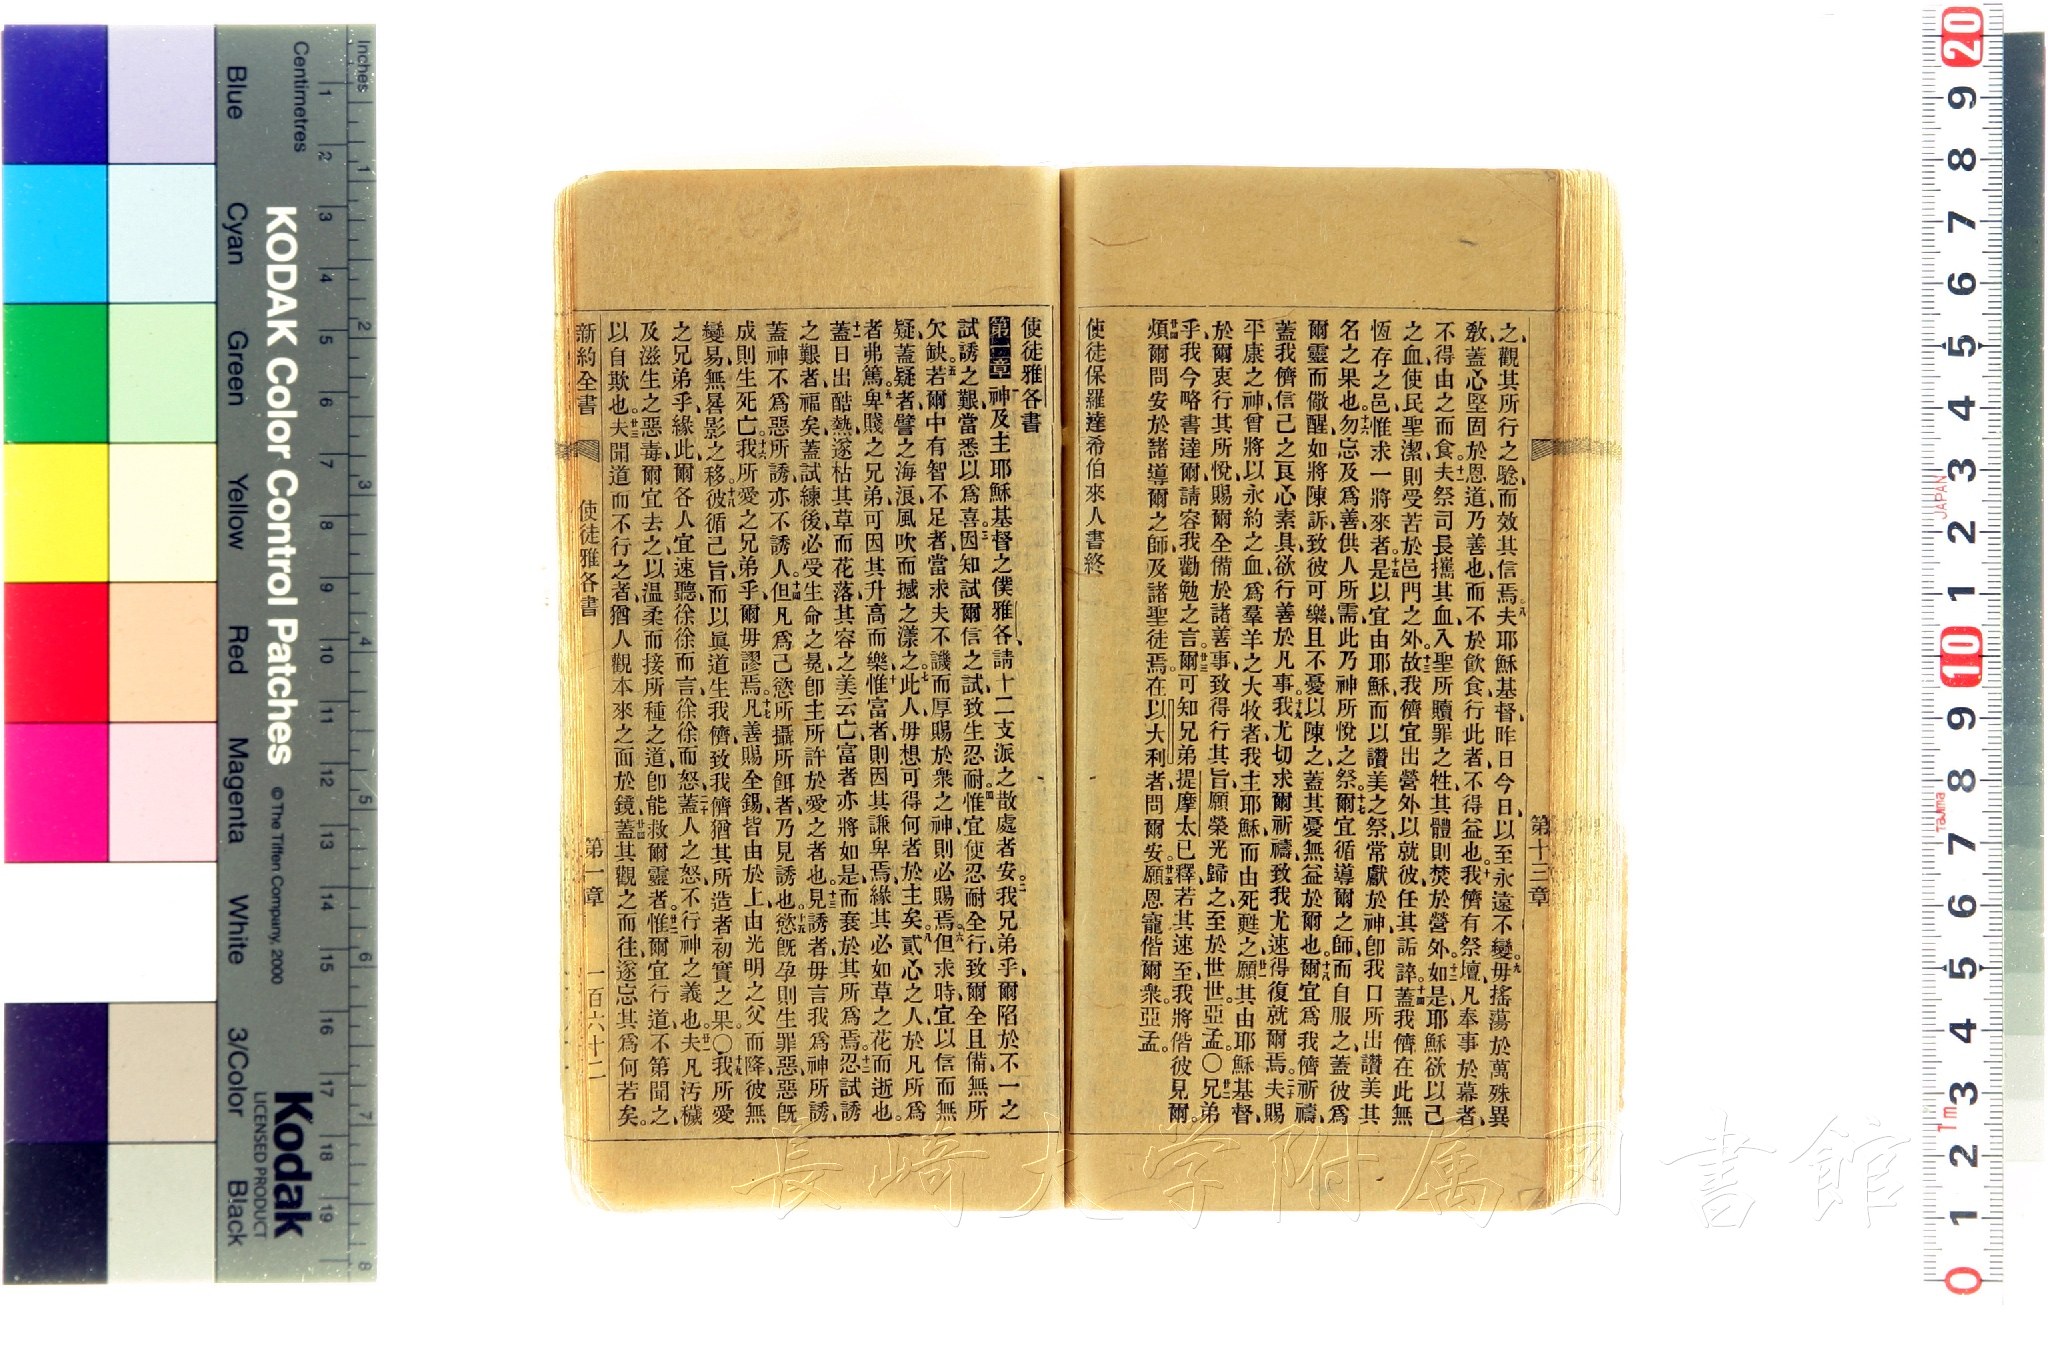 之、觀其所行之驗、而效其信焉。八夫耶穌基督、昨日今日、以至永遠不變。九毋搖蕩於萬殊異
敎、蓋心堅固於恩道乃善也、而不於飲食、行此者、不得益也。十我儕有祭壇、凡奉事於幕者、
不得由之而食。十一夫祭司長攜其血入聖所贖罪之牲、其體則焚於營外。十二如是、耶穌欲以己
之血、使民聖潔、則受苦於邑門之外。十三故我儕宜出營外以就彼、任其詬誶。十四蓋我儕在此無
恆存之邑、惟求一將來者。十五是以宜由耶穌而以讚美之祭、常獻於神、卽我口所出、讚美其
名之果也。十六勿忘及爲善供人所需、此乃神所悅之祭。十七爾宜循導爾之師、而自服之、蓋彼爲
爾靈而儆醒、如將陳訴、致彼可樂、且不憂以陳之、蓋其憂無益於爾也。十八爾宜爲我儕祈禱、
蓋我儕信己之良心素具、欲行善於凡事。十九我尤切求爾祈禱、致我尤速得復就爾焉。二十夫賜
平康之神、曾將以永約之血、爲羣羊之大牧者、我主耶穌、而由死甦之、廿一願其由耶穌基督、
於爾衷行其所悅、賜爾全備於諸善事、致得行其旨、願榮光歸之、至於世世。亞孟。〇廿二兄弟
乎、我今略書達爾、請容我勸勉之言。廿三爾可知兄弟提摩太已釋、若其速至、我將偕彼見爾。
廿四煩爾問安於諸導爾之師、及諸聖徒焉。在以大利者、問爾安。廿五願恩寵偕爾衆。亞孟。
使徒保羅達希伯來人書終
第十三章
使徒雅各書
第一章 神及主耶穌基督之僕雅各、請十二支派之散處者安。二我兄弟乎、爾陷於不一之
試誘之艱、當悉以爲喜。三因知試爾信之試、致生忍耐。四惟宜使忍耐全行、致爾全且備、無所
欠缺。五若爾中有智不足者、當求夫不譏而厚賜於衆之神、則必賜焉。六但求時、宜以信而無
疑、蓋疑者譬之海浪、風吹而撼之漾之。七此人毋想可得何者於主矣。八貳心之人、於凡所爲
者弗篤。九卑賤之兄弟、可因其升高而樂。十惟富者、則因其謙卑焉、緣其必如草之花而逝也。
十一蓋日出酷熱、遂枯其草、而花落、其容之美云亡、富者亦將如是而衰於其所爲焉。十二忍試誘
之艱者福矣、蓋試練後、必受生命之冕、卽主所許於愛之者也。十三見誘者、毋言我爲神所誘、
蓋神不爲惡所誘、亦不誘人。十四但凡爲己慾所攝所餌者、乃見誘也。十五慾旣孕則生罪惡、惡旣
成則生死亡。十六我所愛之兄弟乎、爾毋謬焉。十七凡善賜全錫、皆由於上、由光明之父而降、彼無
變易、無晷影之移。十八彼循己旨、而以眞道生我儕、致我儕猶其所造者初實之果。〇十九我所愛
之兄弟乎、緣此爾各人宜速聽、徐徐而言、徐徐而怒、二十蓋人之怒、不行神之義也。廿一夫凡汚穢、
及滋生之惡毒、爾宜去之、以温柔而接所種之道、卽能救爾靈者。廿二惟爾宜行道、不第聞之、
以自欺也。廿三夫聞道而不行之者、猶人觀本來之面於鏡、廿四蓋其觀之而往、遂忘其爲何若矣。
新約全書
使徒雅各書
第一章
一百六十二
Inches
Centimetres
Blue
Cyan
Green
Yellow
Red
Magenta
White
3/Color
Black
KODAK Color Control Patches
© The Tiffen Company, 2000
Kodak
LICENSED PRODUCT
JAPAN
Tajima
長崎大学附属図書館